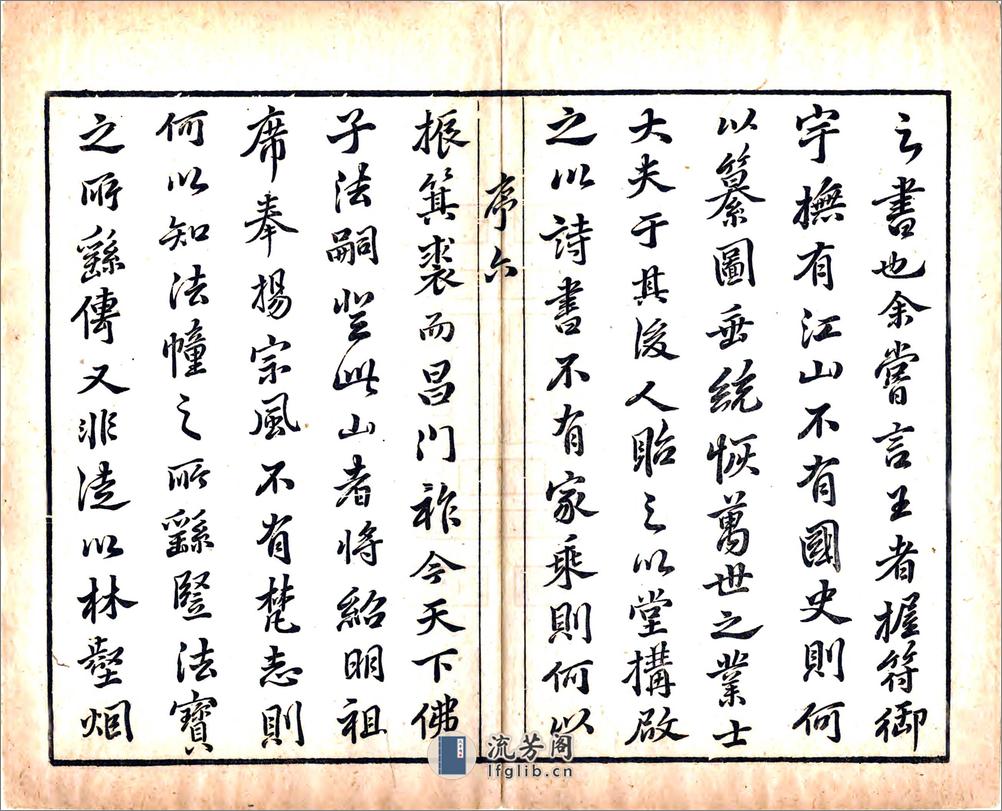 云書也余嘗言王者握符御
宇撫有江山不有國史則何
以纂圖垂統恢萬世之業士
大夫于其後人貽之以堂搆啟
之以詩書不有家乘則何以
序六
振箕裘而昌門祚今天下佛
子法嗣登此山者將紹明祖
席奉揚宗風不有梵志則
何以知法幢之所繇豎法寶
之所繇傳又非徒以林壑烟
流芳阁
lfglib.cn